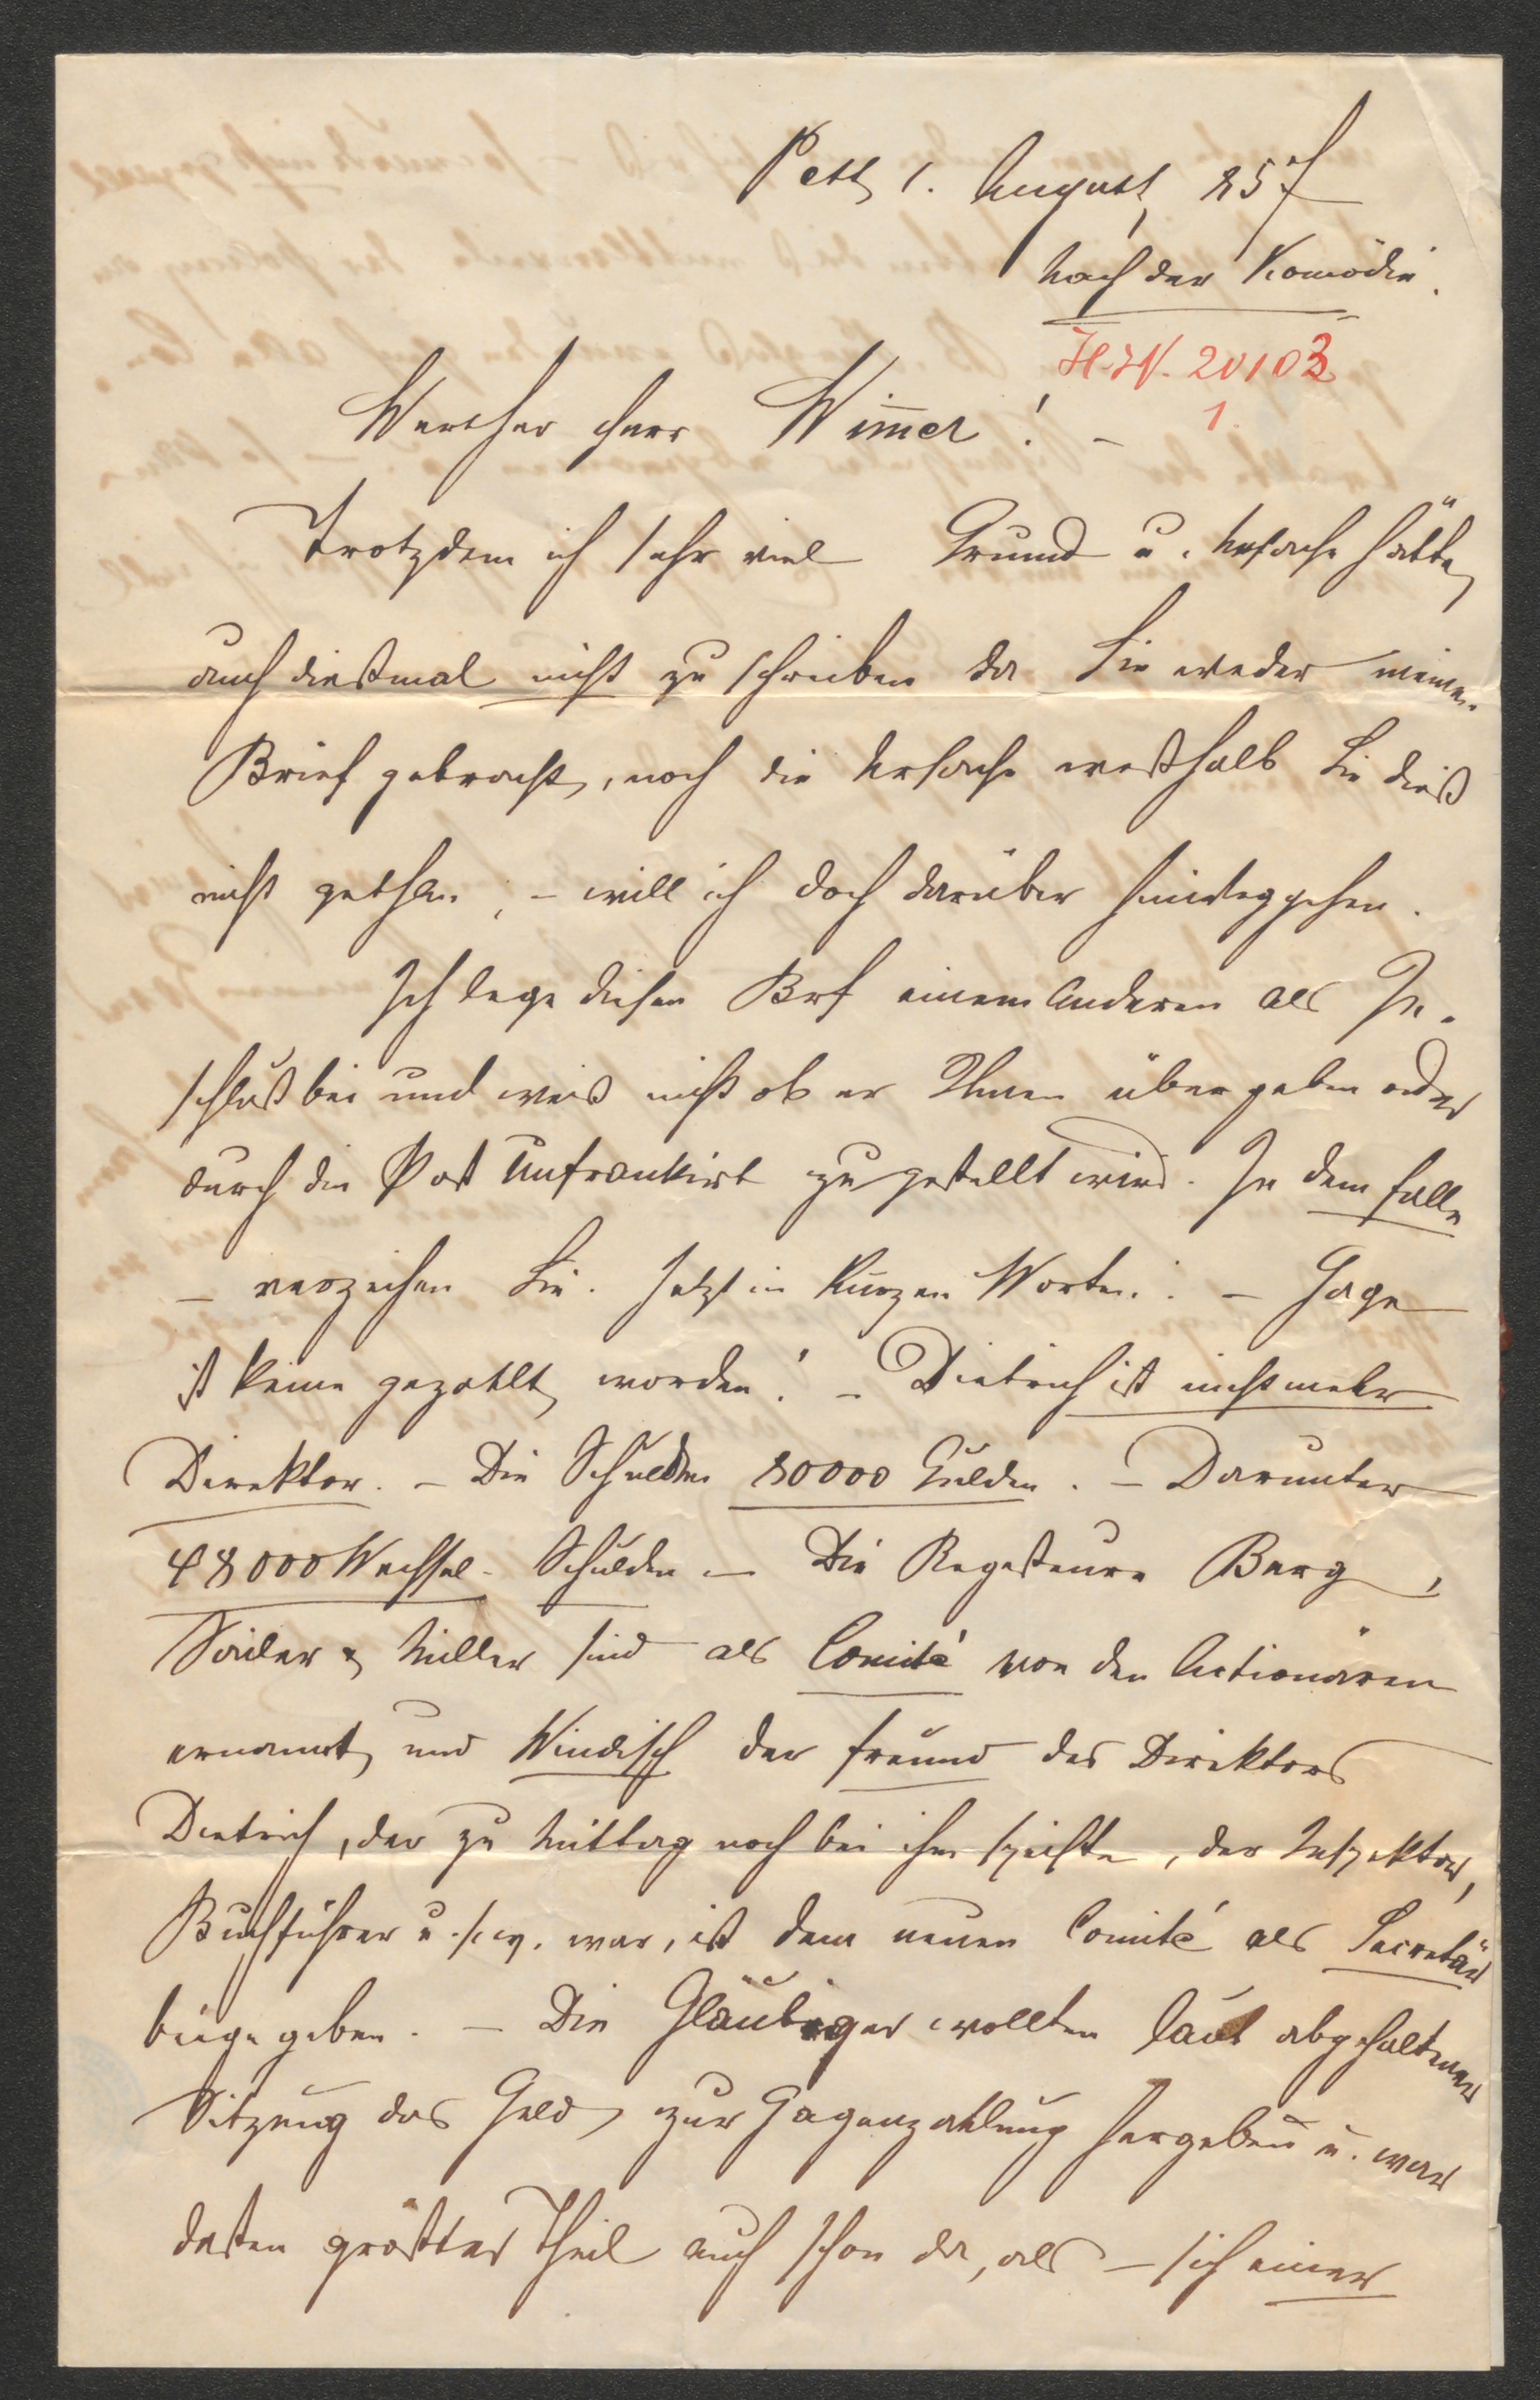 Pest, 1. August, 857
Nach der Komödie.
H.I.N. 20103
1.
Werther Herr Wim̄er! –
Trotzdem ich sehr viel Grund u. Ursache hätte,
auch dießmal nicht zu schreiben da Sie weder meinen
Brief gebracht, noch die Ursache weßhalb Sie dieß
nicht gethan, – will ich doch darüber hinweggehen.
Ich lege diesen Brf einem Anderen als In-
schluß bei und weiß nicht ob er Ihnen übergeben oder
durch die Post unfrankirt zugestellt wird. In dem Falle
– verzeihen Sie. Jetzt in kurzen Worten: – Gage
ist keine gezahlt worden! – Dietrich ist nicht mehr
Direktor. – Die Schulden 80000 Gulden. – Darunter
48000 Wechsel-Schulden – Die Regisseure Berg,
Sailer & Müller sind als Comité von den Actionären
ernannt, und Windisch der Freund des Direktors
Dietrich, der zu Mittag noch bei ihm speiste, der Inspektor,
Buchführer u.s.w. war, ist dem neuen Comité als Secretär
beigegeben. – Die Gläubiger wollten laut abgehaltener
Sitzung das Geld zur Gagenzahlung hergeben u. war
dessen größter Theil auch schon da, als – sich einer